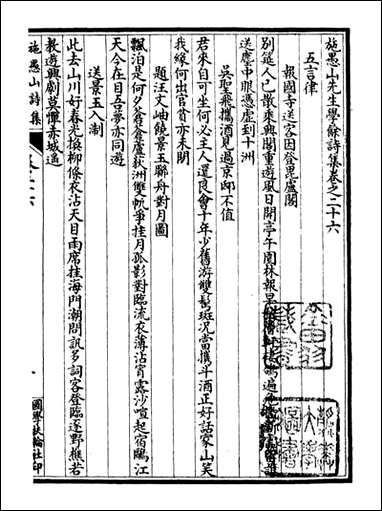 施愚山先生學餘詩集卷之二十六
五言律
報國寺送客因登毘盧閣
別筵人已散乘興閣重遊風日開亭午園林報早
送塵中眼憑虛到十洲
吳聖飛攜酒見過京邸不值
君來自可坐何必主人還良會十年少舊游雙鬢斑況當攜斗酒正好話家山笑
我緣何出官貧亦未閒
題汪文岫饒景玉聯舟對月圖
飄泊是何夕蒼蒼蘆荻洲雙帆爭挂月孤影對臨流衣薄沾宵露沙喧起宿鷗江
天今在目吾夢亦同遊
送景玉入制
此去山川好春光換柳條衣沾天目雨席挂海門潮問訊多詞客登臨逐野樵若
教遊興劇莫憚赤城遙
施愚山詩集
國學扶輪社印